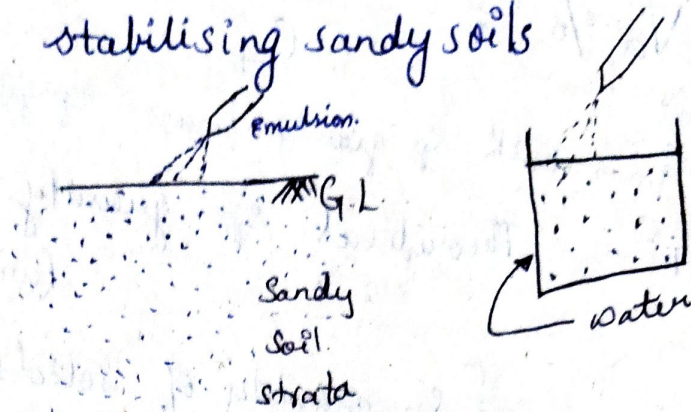 stabilising sandy soils
Emulsion.
G.L.
Sandy
Soil
strata
water